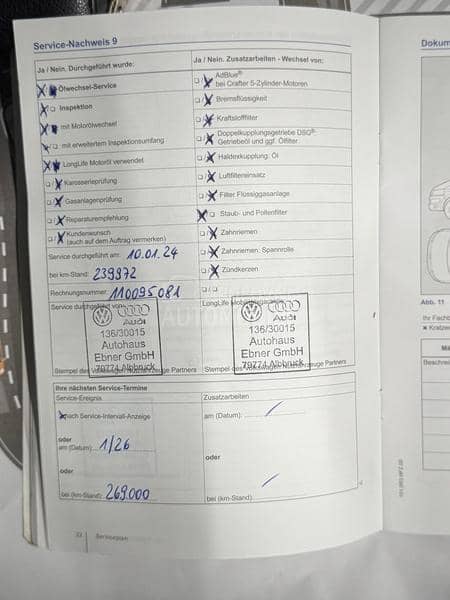 Service-Nachweis 9
Ja / Nein. Durchgeführt wurde:
Ölwechsel-Service
Inspektion
mit Motorölwechsel
mit erweitertem Inspektionsumfang
LongLife Motoröl verwendet
Karosserieprüfung
Gasanlagenprüfung
Reparaturempfehlung
Kundenwunsch
(auch auf dem Auftrag vermerken)
Service durchgeführt am: 10.01.24
bei km-Stand: 239972
Rechnungsnummer: 110095081
Service durchgeführt von
Audi
136/30015
Autohaus
Ebner GmbH
79774 Albbruck
Stempel des Volkswagen Nutzfahrzeuge Partners
Ja / Nein. Zusatzarbeiten - Wechsel von:
AdBlue®
bei Crafter 5-Zylinder-Motoren
Bremsflüssigkeit
Kraftstofffilter
Doppelkupplungsgetriebe DSG®:
Getriebeöl und ggf. Ölfilter
Haldexkupplung: Öl
Luftfiltereinsatz
Filter Flüssiggasanlage
Staub- und Pollenfilter
Zahnriemen
Zahnriemen: Spannrolle
Zündkerzen
LongLife Mobilitätsgarantie
Audi
136/30015
Autohaus
Ebner GmbH
79774 Albbruck
Stempel des Volkswagen Nutzfahrzeuge Partners
Ihre nächsten Service-Termine
Service-Ereignis
nach Service-Intervall-Anzeige
oder
am (Datum): 1/26
oder
bei (km-Stand): 269.000
Zusatzarbeiten
am (Datum):
oder
bei (km-Stand):
Serviceplan
Dokum
Abb. 11
Ihr Fach
Kratze
Beschrei